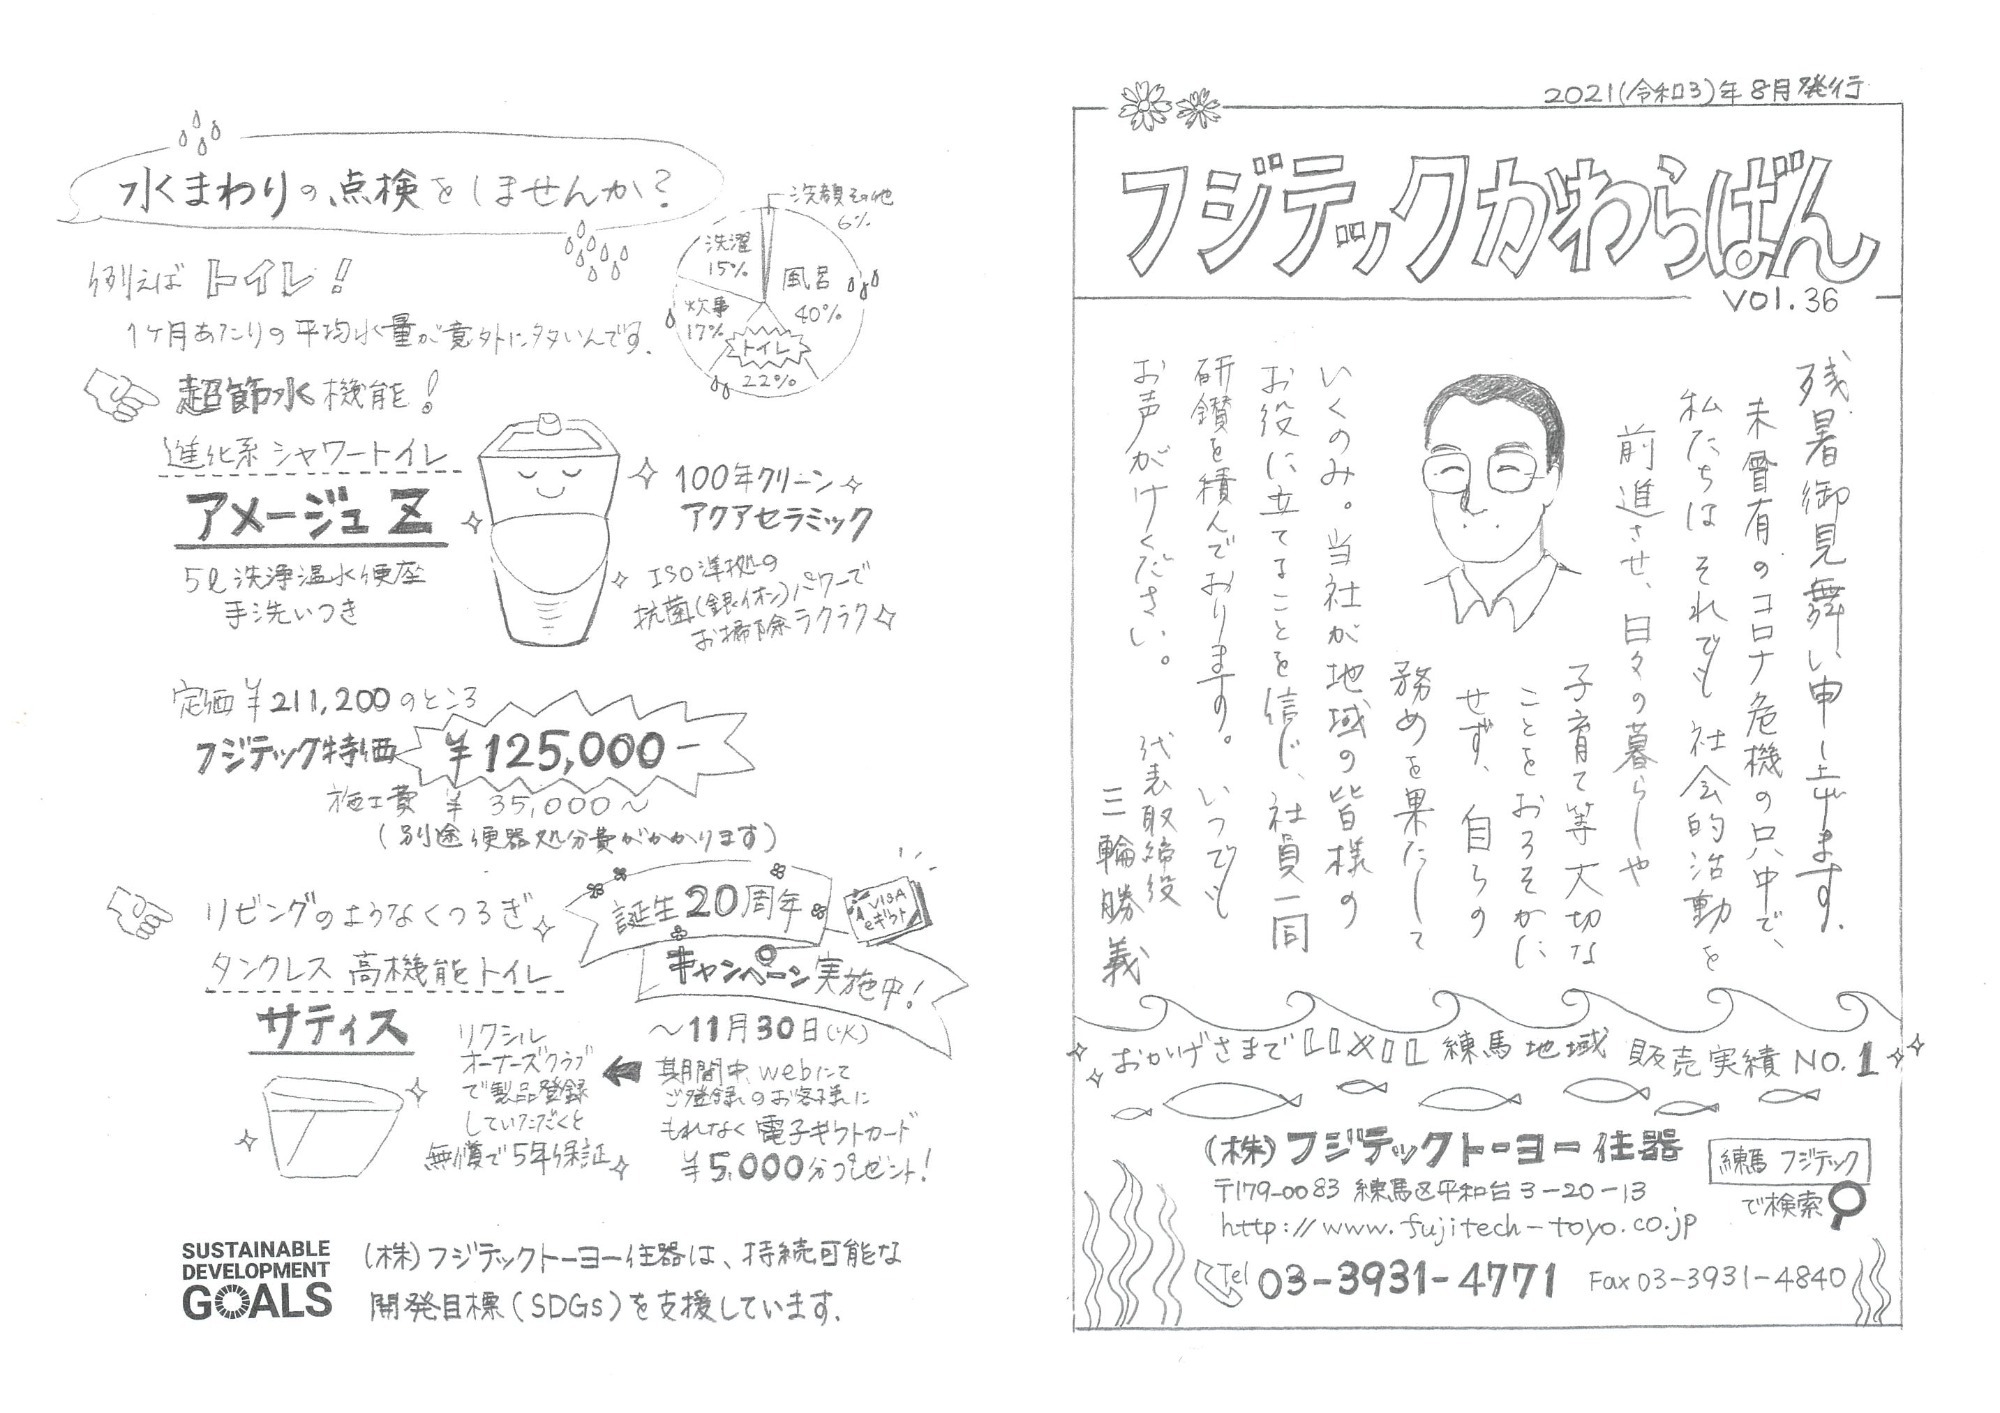 2021(令和3)年8月発行
フジテックかわらばん
VOl.36
残暑御見舞い申し上げます。
未曾有のコロナ危機の只中で、
私たちはそれでも社会的活動を
前進させ、日々の暮らしや
子育て等大切な
ことをおろそかに
せず、自らの
務めを果たして
いくのみ。当社が地域の皆様の
お役に立てることを信じ、社員一同
研鑽を積んでおります。いつでも
お声がけください。
代表取締役
三輪勝義
おかげさまでLIXIL練馬地域 販売実績NO.1
(株)フジテックトーヨー住器
〒179-0083 練馬区平和台3-20-13
http://www.fujitech-toyo.co.jp
練馬 フジテック
で検索
Tel 03-3931-4771 Fax 03-3931-4840
水まわりの点検をしませんか?
例えばトイレ!
1ヶ月あたりの平均水量が意外に多いんです。
洗顔その他
6%
風呂
40%
トイレ
22%
炊事
17%
洗濯
15%
超節水機能!
進化系シャワートイレ
アメージュZ
5ℓ洗浄温水便座
手洗いつき
100年クリーン
アクアセラミック
ISO準拠の
抗菌(銀イオン)パワーで
お掃除ラクラク
定価¥211,200のところ
フジテック特価 ¥125,000-
施工費 ¥35,000~
(別途便器処分費がかかります)
リビングのようなくつろぎ
タンクレス高機能トイレ
サティス
誕生20周年
キャンペーン実施中!
VISA
eギフト
~11月30日(火)
期間中、webにて
ご登録のお客様に
もれなく電子ギフトカード
¥5,000分プレゼント!
リクシル
オーナーズクラブ
で製品登録
していただくと
無償で5年保証
SUSTAINABLE
DEVELOPMENT
GOALS
(株)フジテックトーヨー住器は、持続可能な
開発目標(SDGs)を支援しています。